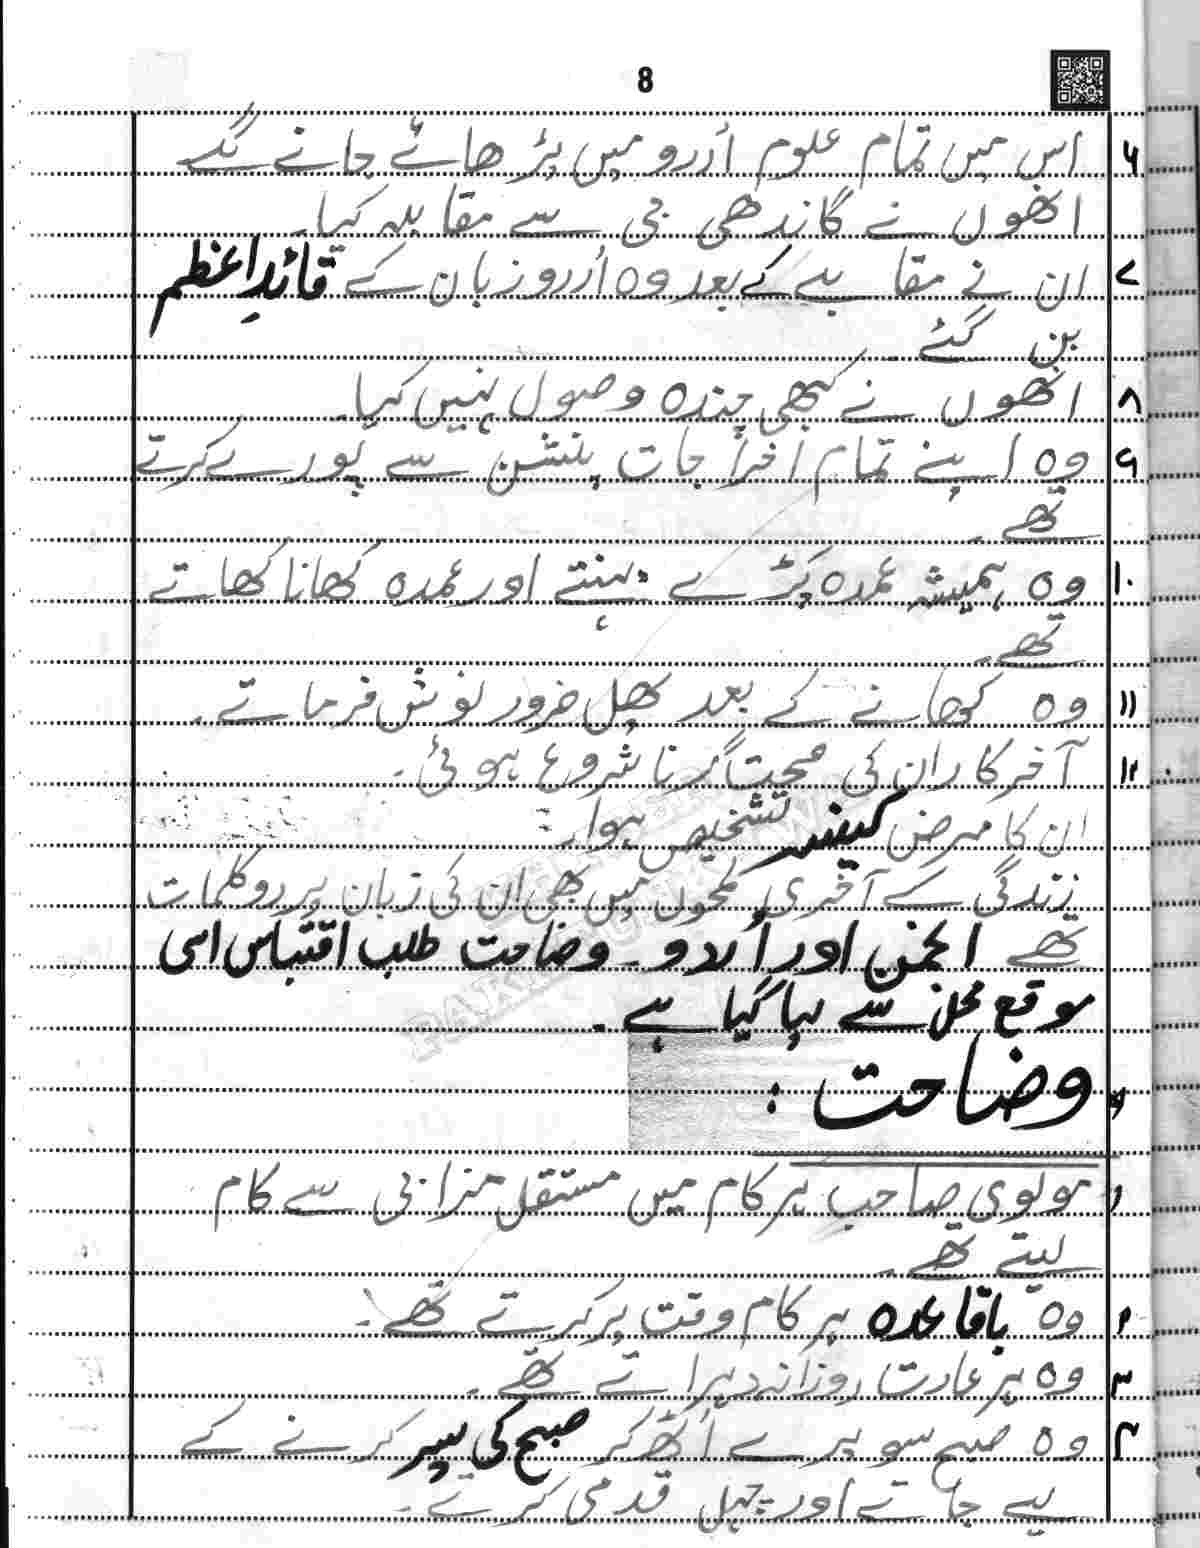 8
۶ اس میں تمام علوم اُردو میں پڑھائے جانے لگے
انھوں نے گاندھی جی سے مقابلہ کیا۔
۷ ان نے مقابلے کے بعد وہ اُردو زبان کے قائدِاعظم
بن گئے۔
۸ انھوں نے کبھی چندہ وصول نہیں کیا۔
۹ وہ اپنے تمام اخراجات پنشن سے پورے کرتے
تھے۔
۱۰ وہ ہمیشہ عمدہ کپڑے پہنتے اور عمدہ کھانا کھاتے
تھے۔
۱۱ وہ کھانے کے بعد پھل ضرور نوش فرماتے۔
۱۲ آخر کار ان کی صحت گرنا شروع ہوئی۔
ان کا مرض کینسر تشخیص ہوا۔
زندگی کے آخری لمحوں میں بھی ان کی زبان پر دو کلمات
تھے انجمن اور اُردو۔ وضاحت طلب اقتباس اسی
موقع محل سے لیا گیا ہے۔
وضاحت:
۱ مولوی صاحب ہر کام میں مستقل مزاجی سے کام
لیتے تھے۔
۲ وہ باقاعدہ ہر کام وقت پر کرتے تھے۔
۳ وہ ہر عادت روزانہ دہراتے تھے۔
۴ وہ صبح سویرے اُٹھ کر صبح کی سیر کرنے کے
لیے جاتے اور چہل قدمی کرتے۔